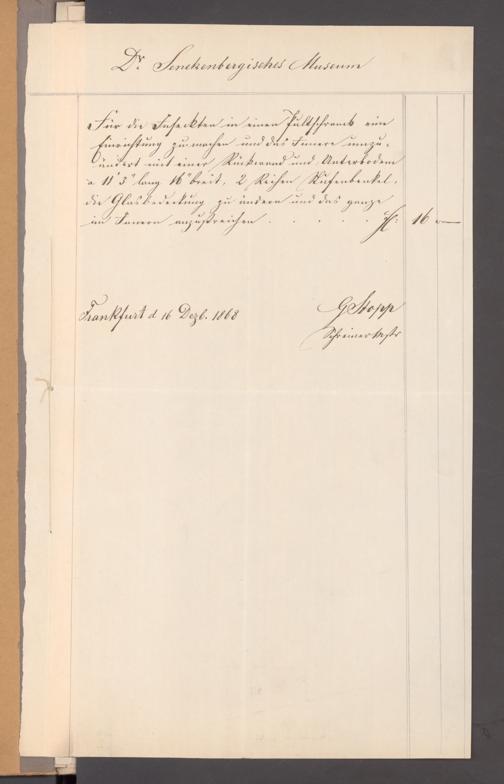 Dr. Senckenbergisches Museum
Für die Insekten in einen Pultschrank eine
Einrichtung zu machen und das Innere umzu-
ändert mit einer Rückwand und Unterboden
a 11' 5" lang 16" breit, 2 Reihen
die Glasbedeckung zu ändern und das ganze
im Innern anzustreichen . . . . . fl: 16 —
Frankfurt d 16 Dezb. 1868
G Stopp
Schreinermstr